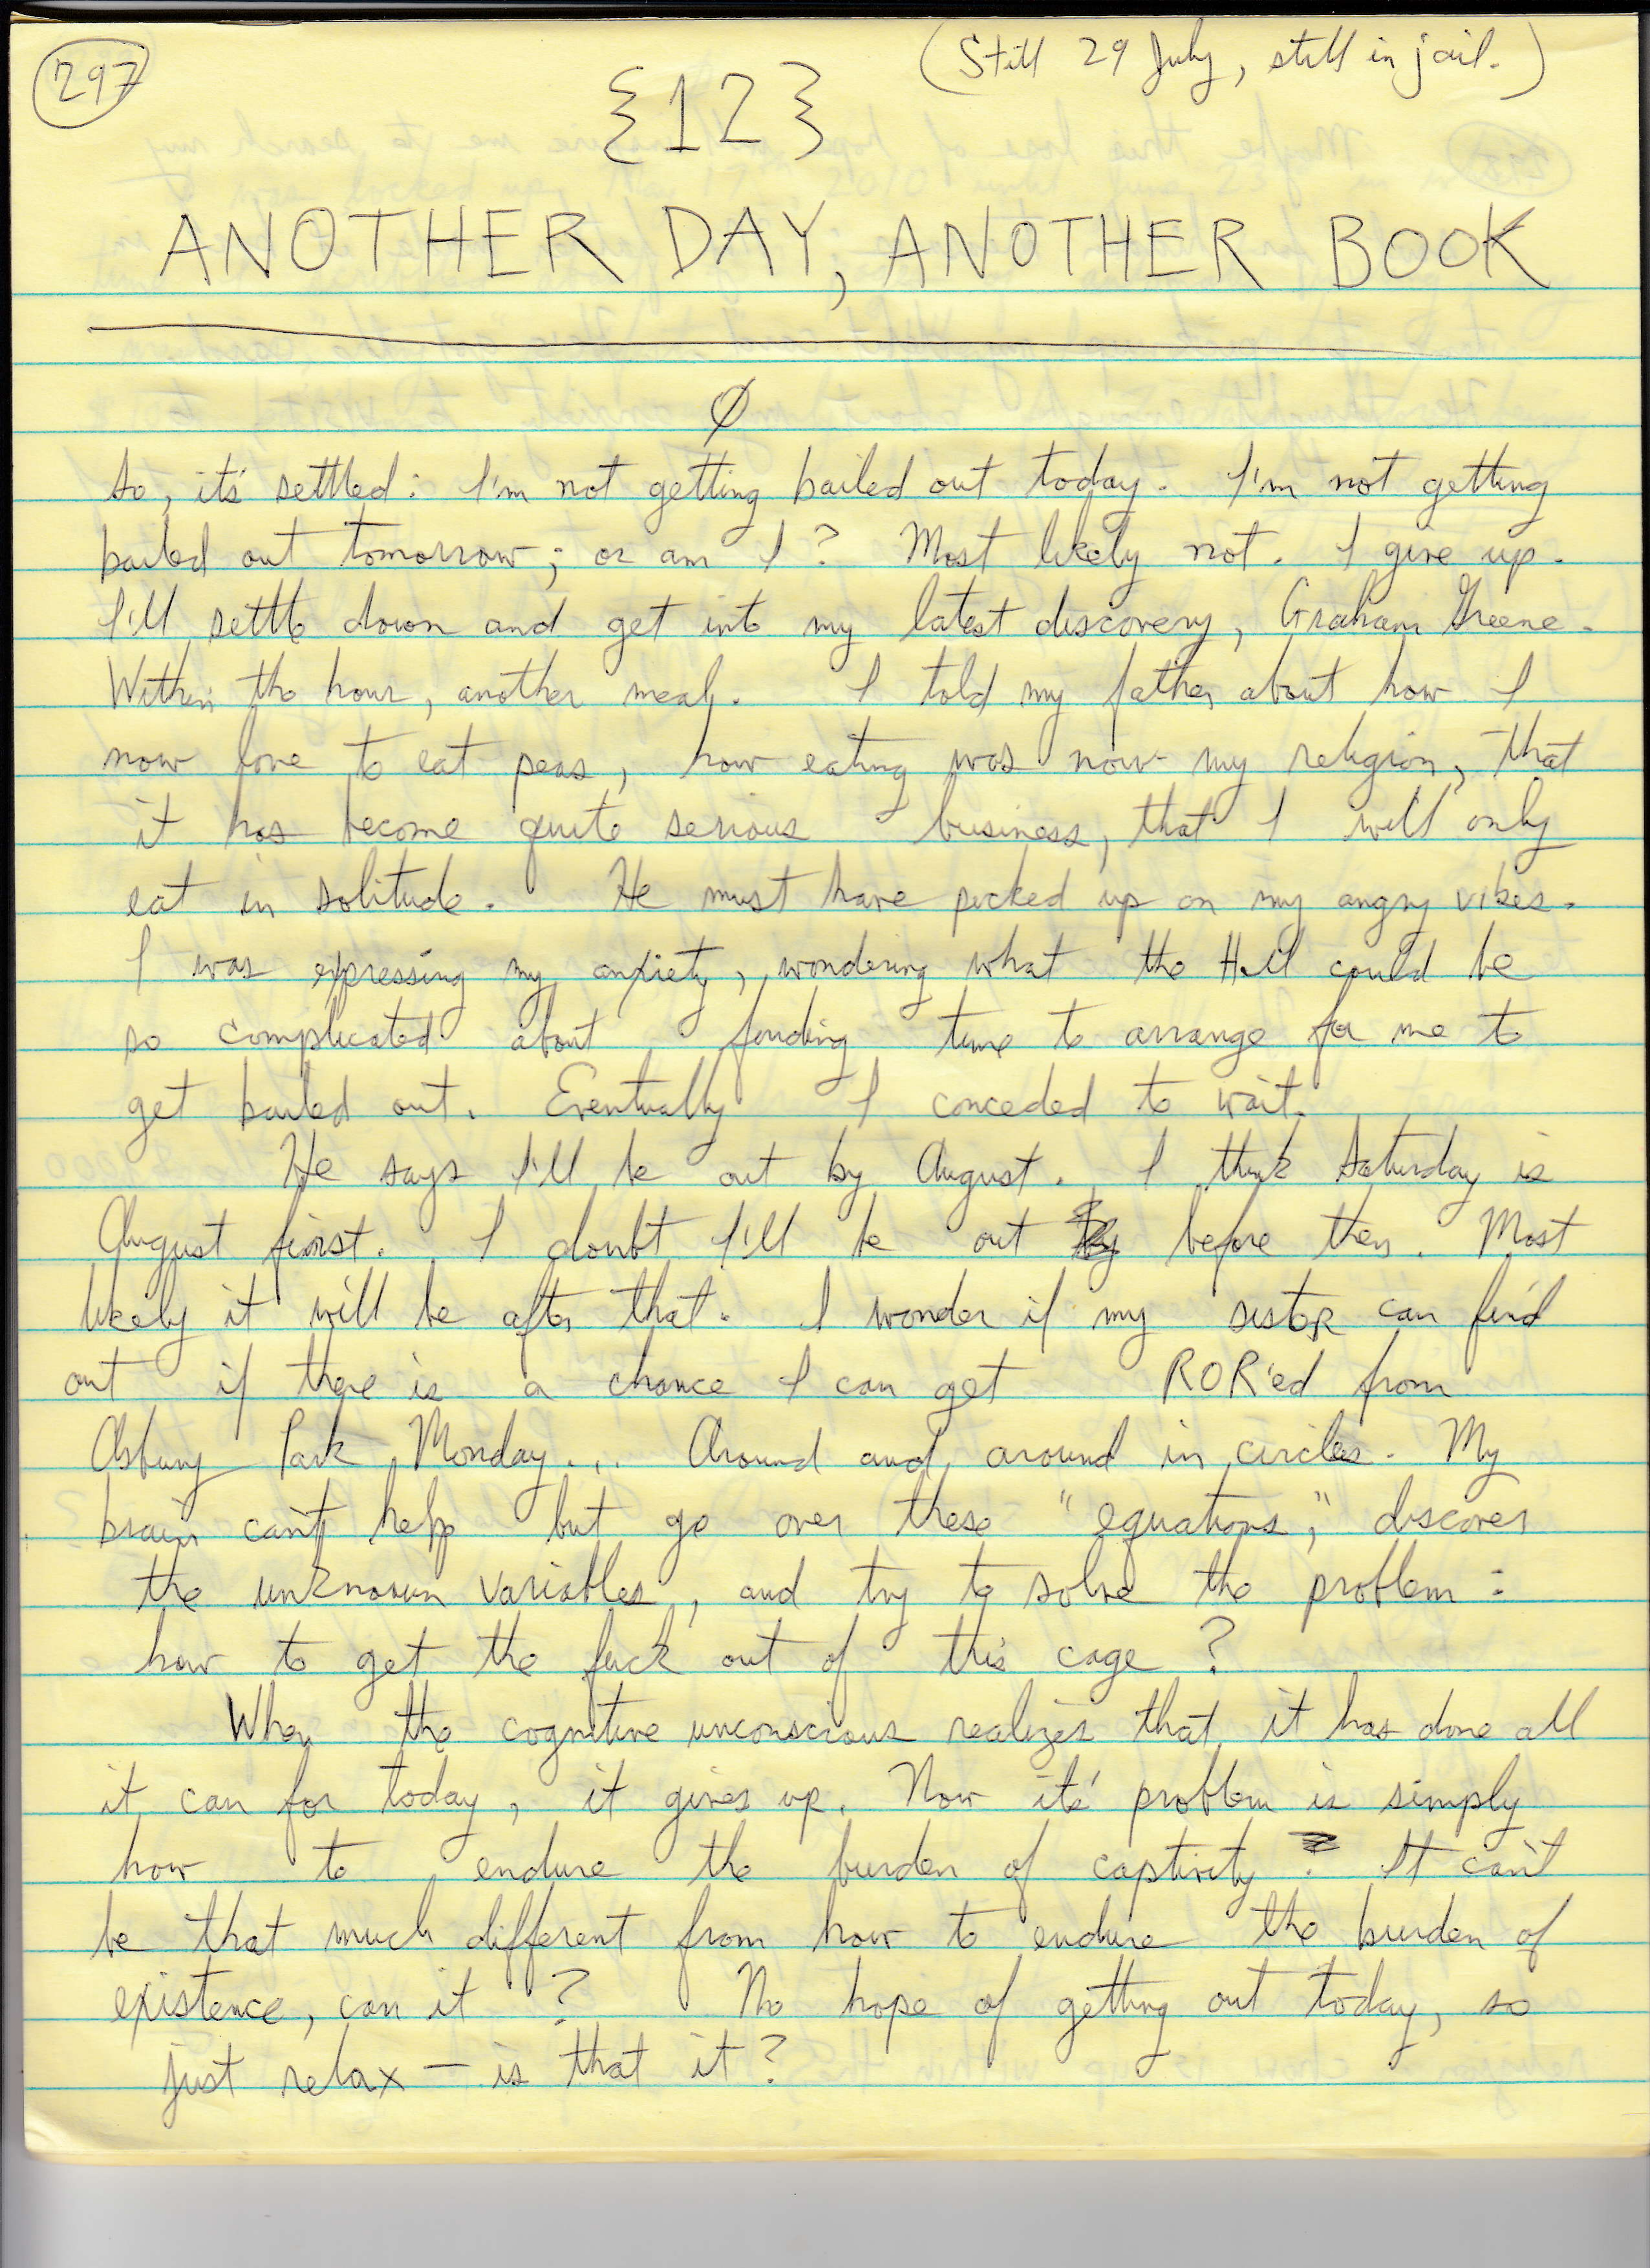 297
(Still 29 July, still in jail.)
{12}
ANOTHER DAY, ANOTHER BOOK
Ø
So, it's settled: I'm not getting bailed out today. I'm not getting
bailed out tomorrow; or am I? Most likely not. I give up.
I'll settle down and get into my latest discovery, Graham Greene.
Within the hour, another meal. I told my father about how I
now love to eat peas, how eating was now my religion, that
it has become quite serious business, that I will only
eat in solitude. He must have picked up on my angry vibes.
I was expressing my anxiety, wondering what the Hell could be
so complicated about finding time to arrange for me to
get bailed out. Eventually I conceded to wait.
He says I'll be out by August. I think Saturday is
August first. I doubt I'll be out before then. Most
likely it will be after that. I wonder if my sister can find
out if there is a chance I can get ROR'ed from
Asbury Park Monday... Around and around in circles. My
brain can't help but go over these "equations," discover
the unknown variables, and try to solve the problem:
how to get the fuck out of this cage?
When the cognitive unconscious realizes that it has done all
it can for today, it gives up. Now it's problem is simply
how to endure the burden of captivity. It can't
be that much different from how to endure the burden of
existence, can it? No hope of getting out today, so
just relax — is that it?